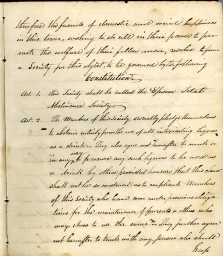 therefore the friends of domestic and social happiness
in this town, wishing to do all in their power to pro-
mote the welfare of their fellow men, resolve to form
a Society for this object, to be governed by the following
Constitution
Art. 1. This Society shall be called the Epsom Total
Abstinence Society.
Art. 2. The Members of this Society severally pledge themselves
to abstain entirely from the use of all intoxicating liquors
as a drink. They also agree not to make or
in any to procure any such liquors to be used as
a drink by others, provided however that this shall
shall not be so construed as to implicate Members
of this Society who have now under previous obliga-
tions for the maintenance of parents & others who
may chose to use the same. They further agree
not to to trade with any person who should
keep